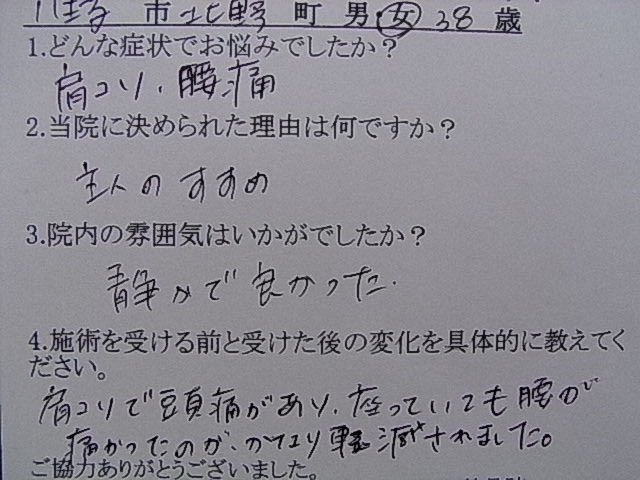 市 北野 町 男・女 38 歳
1.どんな症状でお悩みでしたか？
肩コリ、腰痛
2.当院に決められた理由は何ですか？
主人のすすめ
3.院内の雰囲気はいかがでしたか？
静かで良かった.
4.施術を受ける前と受けた後の変化を具体的に教えてく
ださい。
肩コリで頭痛があり、座っていても腰が
痛かったのが、かなり軽減されました。
ご協力ありがとうございました。